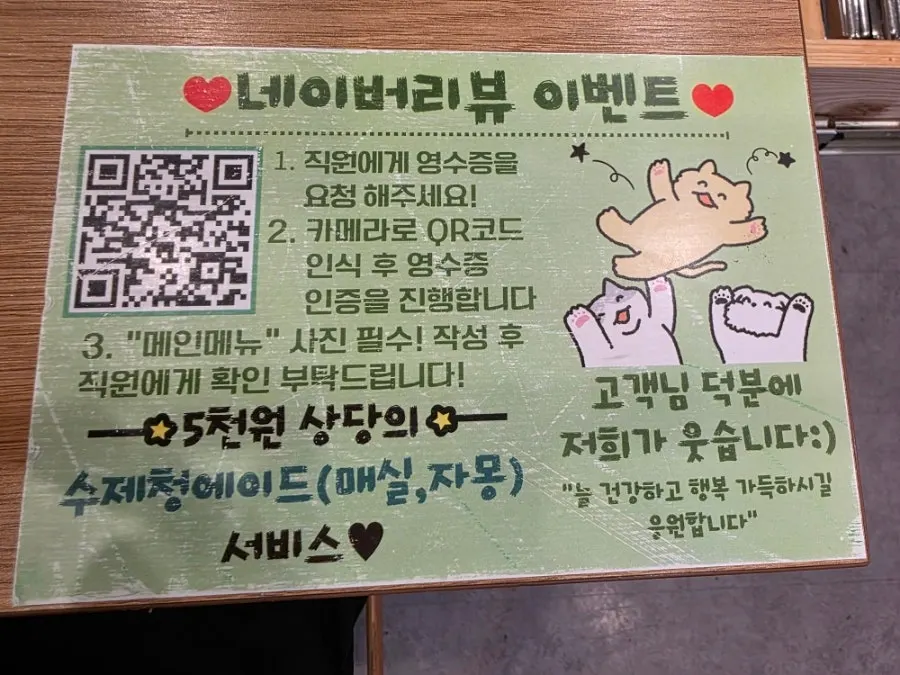 네이버리뷰 이벤트
1. 직원에게 영수증을
요청 해주세요!
2. 카메라로 QR코드
인식 후 영수증
인증을 진행합니다
3. "메인메뉴" 사진 필수! 작성 후
직원에게 확인 부탁드립니다!
5천원 상당의
수제청에이드(매실,자몽)
서비스
고객님 덕분에
저희가 웃습니다:)
"늘 건강하고 행복 가득하시길
응원합니다"